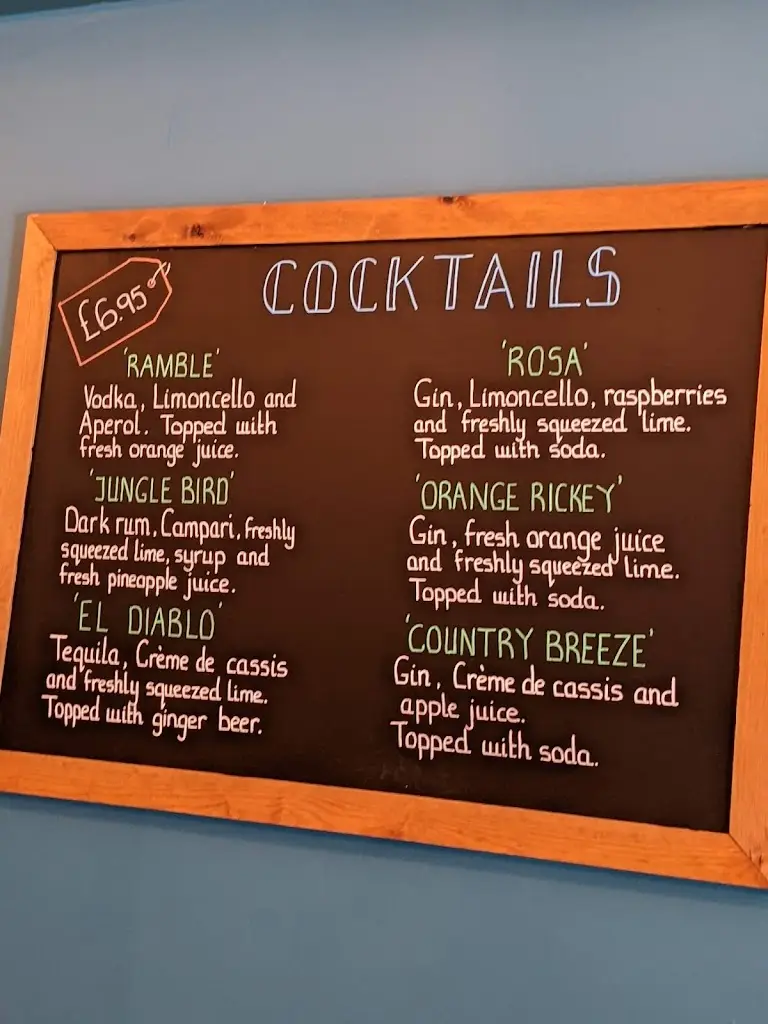 COCKTAILS
£6.95
'RAMBLE'
Vodka, Limoncello and
Aperol. Topped with
fresh orange juice.
'JUNGLE BIRD'
Dark rum, Campari, freshly
squeezed lime, syrup and
fresh pineapple juice.
'EL DIABLO'
Tequila, Crème de cassis
and freshly squeezed lime.
Topped with ginger beer.
'ROSA'
Gin, Limoncello, raspberries
and freshly squeezed lime.
Topped with soda.
'ORANGE RICKEY'
Gin, fresh orange juice
and freshly squeezed lime.
Topped with soda.
'COUNTRY BREEZE'
Gin, Crème de cassis and
apple juice.
Topped with soda.